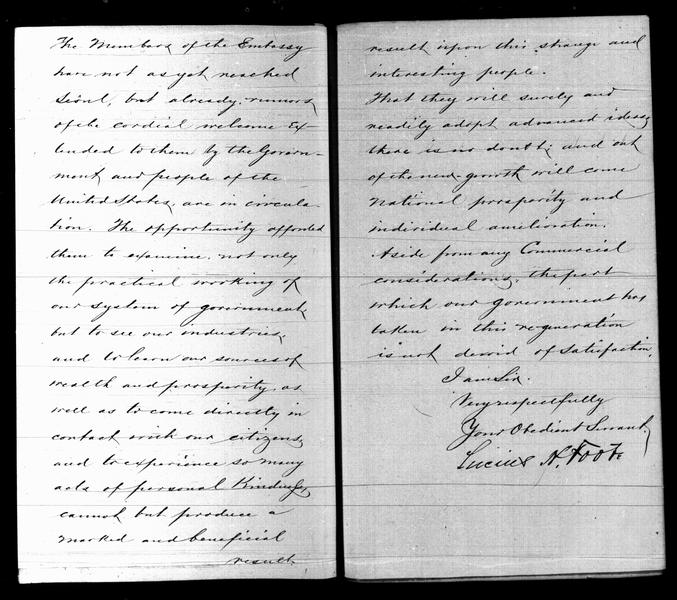 The Members of the Embassy
have not as yet reached
Séoul, but already, rumors
of the cordial welcome ex-
tended to them by the Govern-
ment, and people of the
United States, are in circula-
tion. The opportunity afforded
them to examine, not only
the practical working of
our system of government,
but to see our industries,
and to learn our sources of
wealth and prosperity, as
well as to come directly in
contact with our citizens,
and to experience so many
acts of personal kindness,
cannot but produce a
marked and beneficial
result
result upon this strange and
interesting people.
That they will surely and
readily adopt advanced ideas,
there is no doubt; and out
of the new growth will come
National prosperity and
individual amelioration.
Aside from any Commercial
considerations, the part
which our government has
taken in this re-generation
is not devoid of satisfaction.
I am Sir.
Very respectfully
Your Obedient Servant
Lucius H. Foote